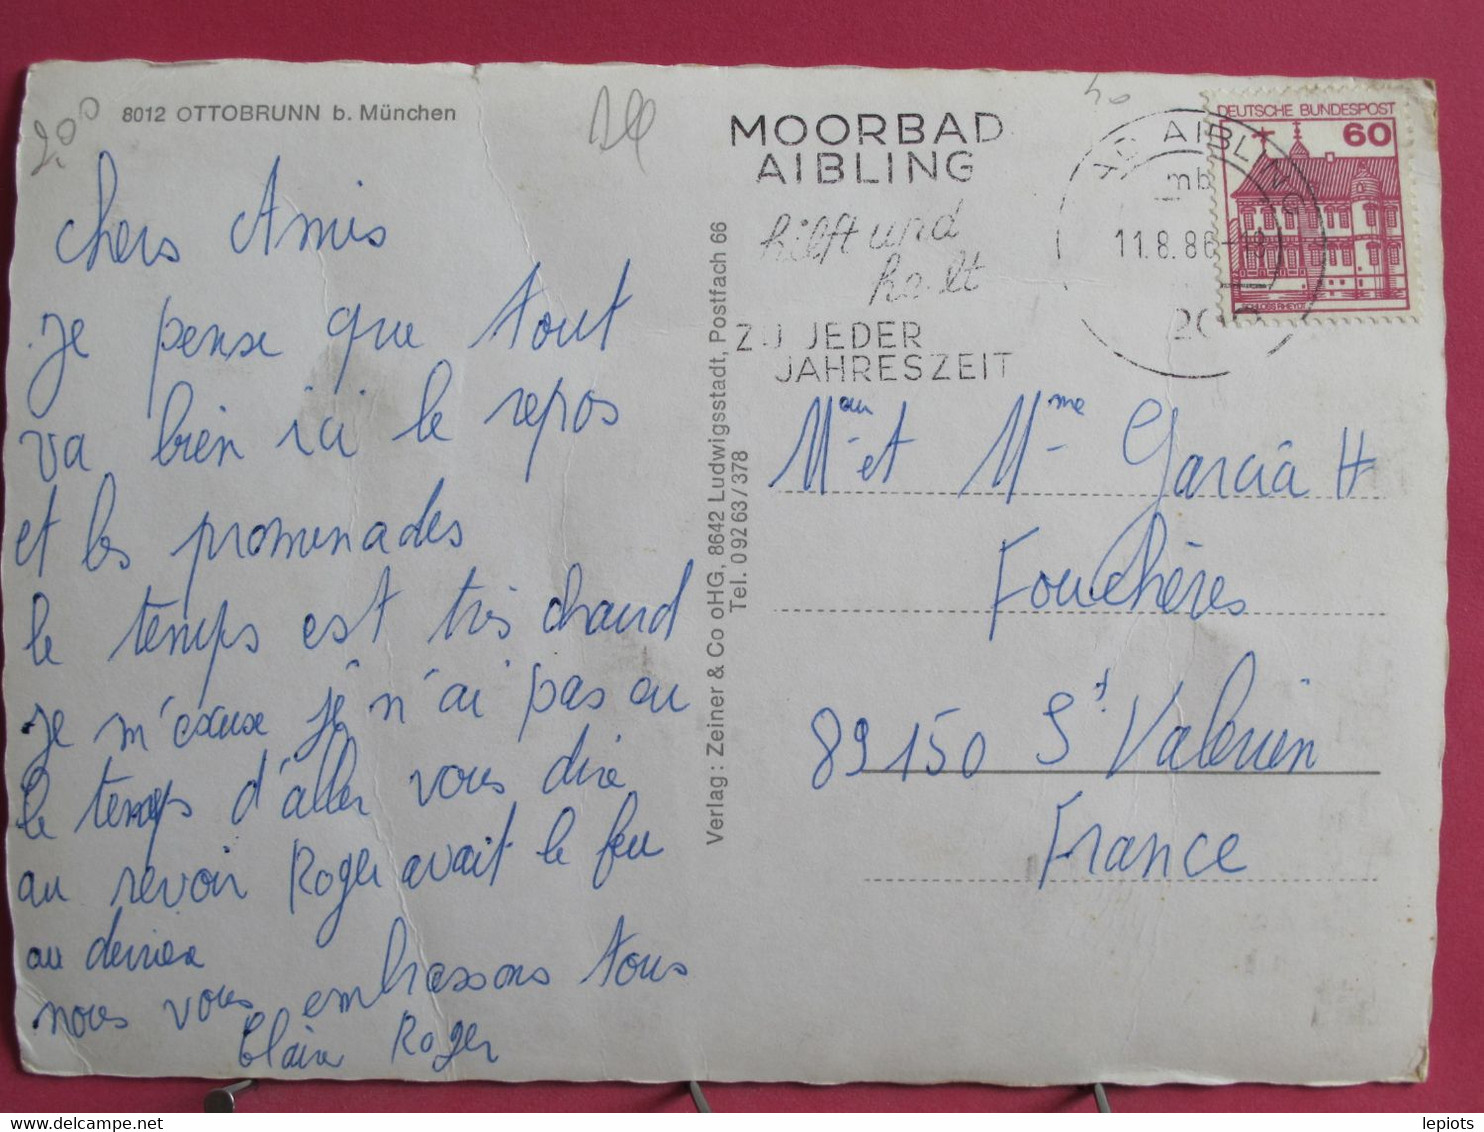 8012 OTTOBRUNN b. München
2.00
chers Amis
je pense que tout
va bien ici le repos
et les promenades
le temps est très chaud
je m'excuse je n'ai pas eu
le temps d'aller vous dire
au revoir Roger avait le feu
au derriere
nous vous embrassons tous
Claire Roger
Verlag: Zeiner & Co oHG, 8642 Ludwigsstadt, Postfach 66
Tel. 09263/378
MOORBAD
AIBLING
hilft und
heilt
ZU JEDER
JAHRESZEIT
AD AIBLING
mb
11.8.86-18
DEUTSCHE BUNDESPOST
60
SCHLOSS RHEYDT
Mr et Mme Garcia H
Fouchères
89150 St Valerien
France
lepiots